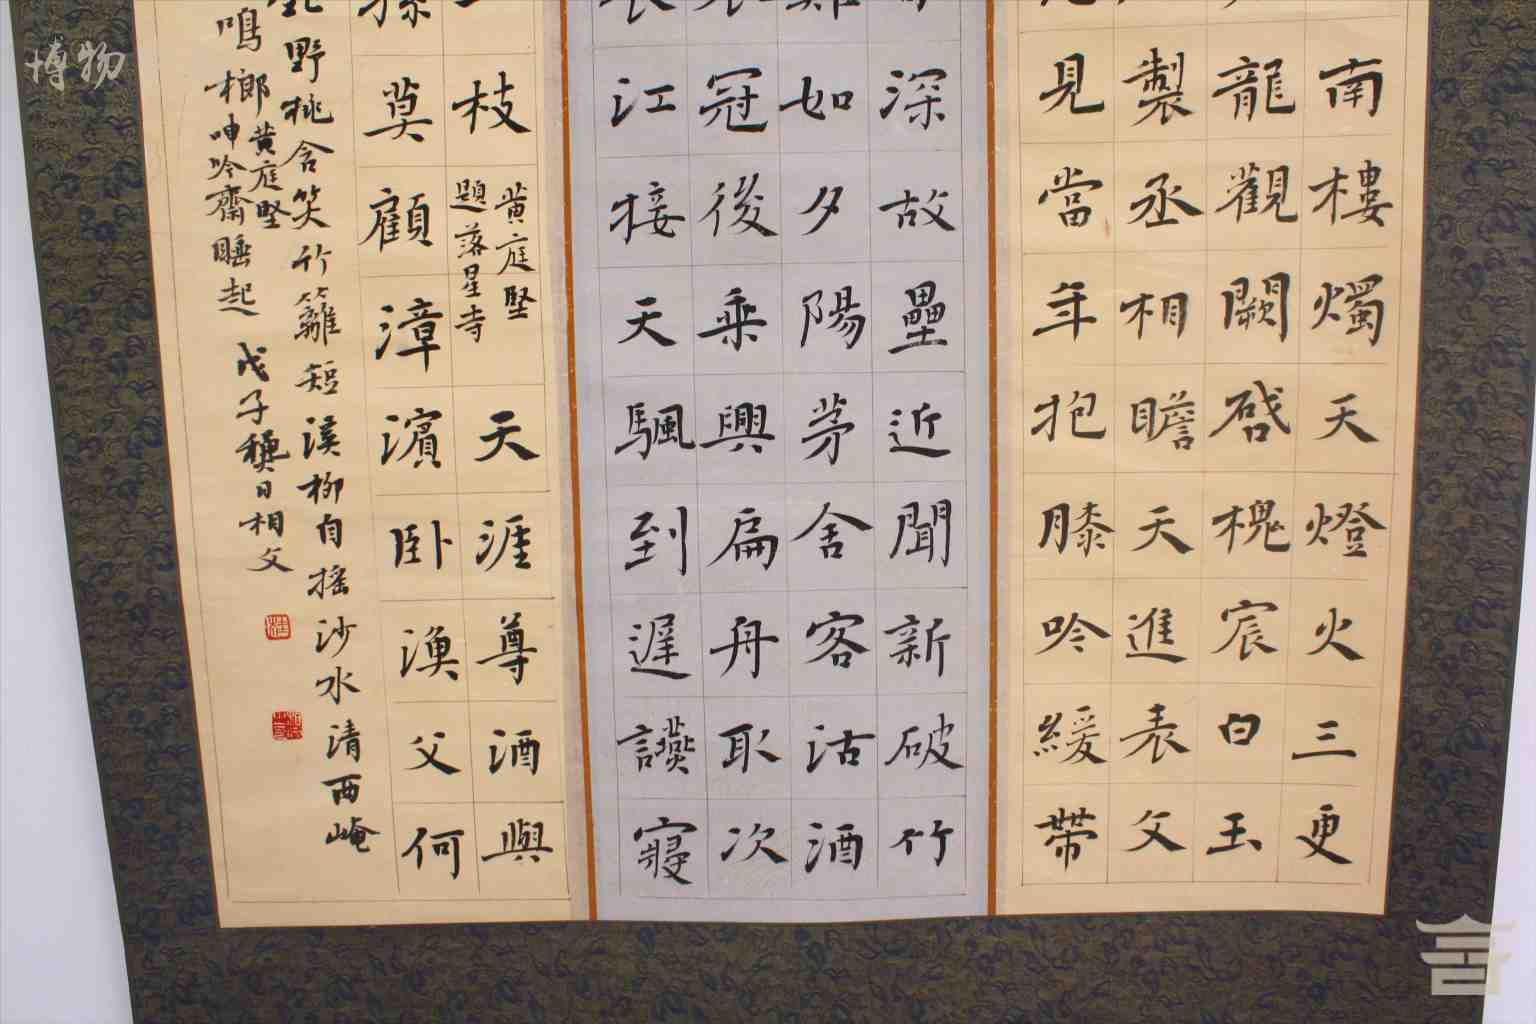 南樓燭天燈火三更
龍觀闕啓槐宸白玉
製丞相瞻天進表文
見當年抱膝吟緩帶
深故壘近聞新破竹
難如夕陽茅舍客沽酒
冠後乘興扁舟取次
江接天颿到遲讌寢
枝
黄庭堅
題落星寺
天涯尊酒與
孫莫顧漳濱卧漁父何
野桃含笑竹籬短溪柳自搖沙水清西崦
鳴榔
黄庭堅
呻吟齋睡起
戊子穫日相文
博物